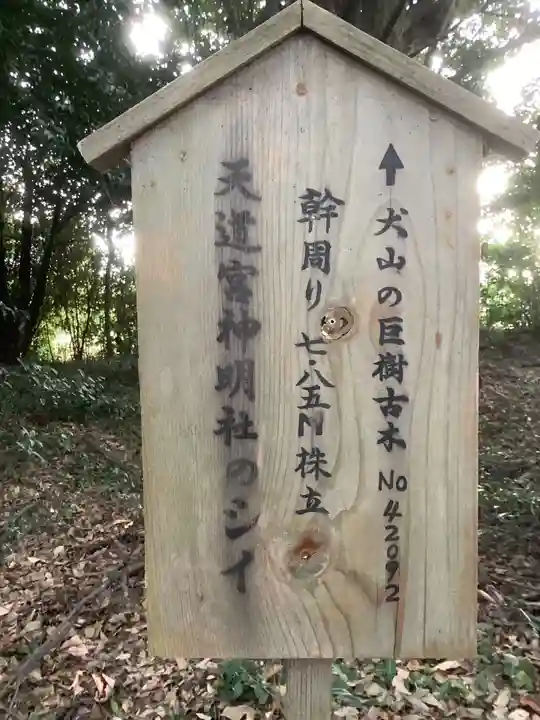 ↑犬山の巨樹古木 No42092
幹周り 七・八五m株立
天道宮神明社のシイ